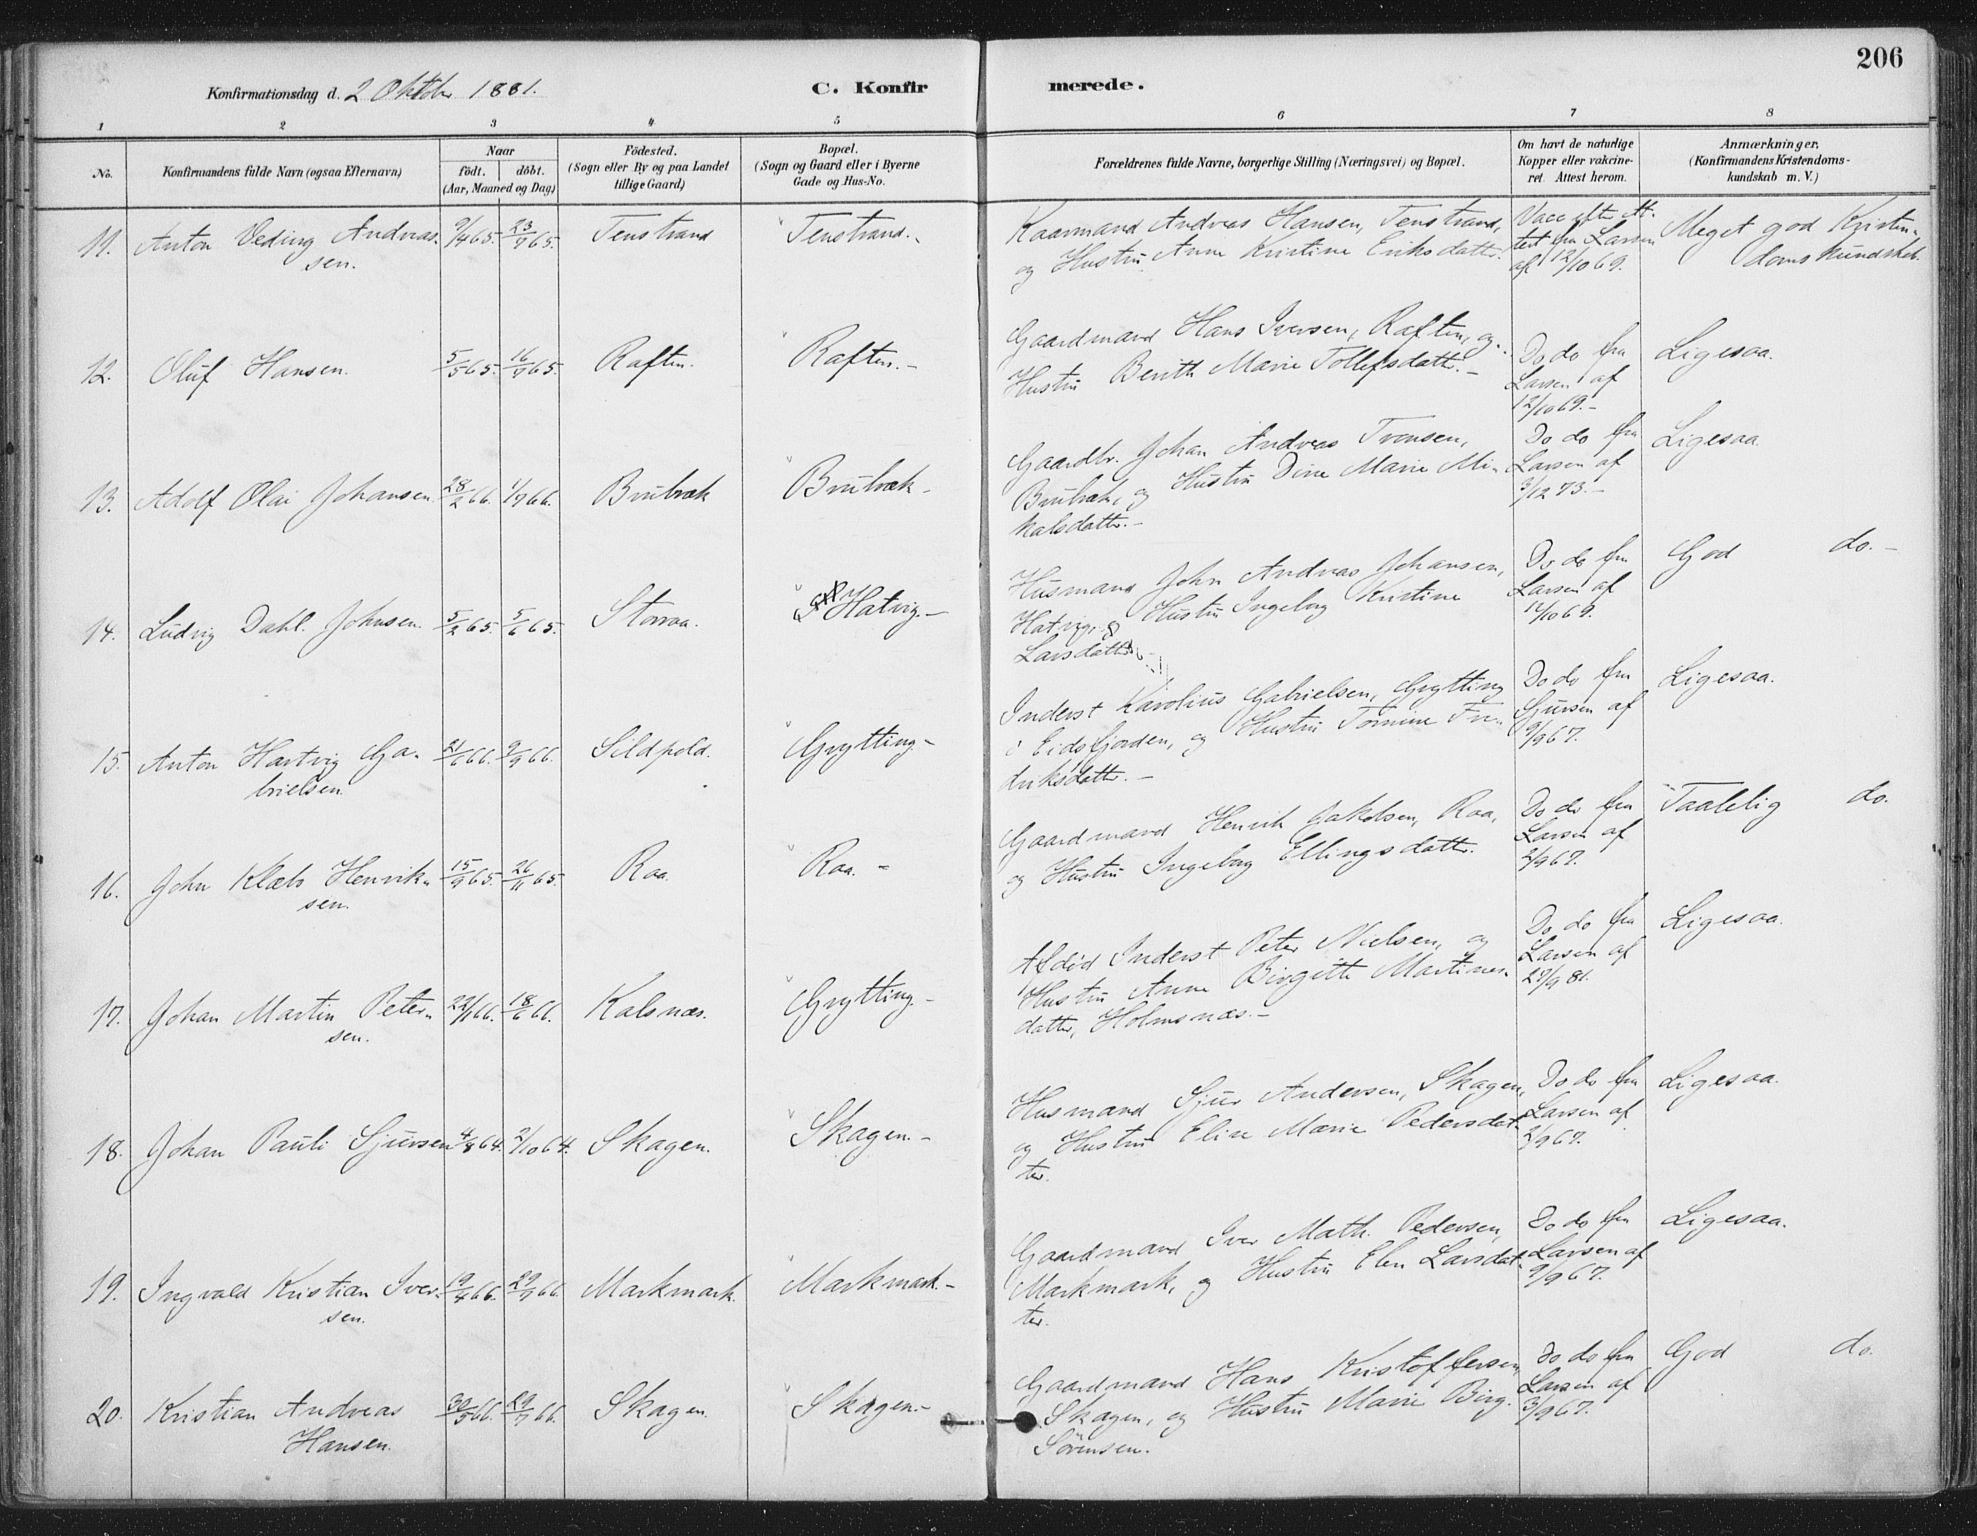 206
Konfirmationsdag d. 2 Oktober 1881. C. Konfir merede.
1 2 3 4 5 6 7 8
No. Konfirmandens fulde Navn (ogsaa Efternavn) Naar födt. döbt. (Aar, Maaned og Dag) Födested. (Sogn eller By og paa Landet tillige Gaard) Bopæl. (Sogn og Gaard eller i Byerne Gade og Hus-No. Forældrenes fulde Navne, borgerlige Stilling (Næringsvei) og Bopæl. Om havt de naturlige Kopper eller vakcineret. Attest herom. Anmærkninger. (Konfirmandens Kristendomskundskab m. V.)
11. Anton Veding Andreas- 9/4 65. 23/7 65. Tenstrand Tenstrand.- Kaarmand Andreas Hansen, Tenstrand, Vacc. efter At- Meget god Kristen-
sen. og Hustru Anne Kristine Eriksdatter. test fra Larsen doms kundskab.
af 12/10 69.
12. Oluf Hansen. 5/5 65. 16/7 65. Raften. Raften.- Gaardmand Hans Iversen, Raften, og Do do fra Ligesaa.
Hustru Berith Marie Tollefsdatter.- Larsen af
12/10 69.-
13. Adolf Olai Johansen. 28/2 66. 1/7 66. Brubræk Brubræk- Gaardbr. Johan Andreas Tronsen, Do do fra Ligesaa
Brubræk, og Hustru Dine Marie Mi- Larsen af
kalsdatter.- 3/12 73.-
14. Ludvig Dahl. Johnsen. 5/2 65. 5/6 65. Storraa. Hatvig.- Husmand John Andreas Johansen, Do do fra God do.-
Hatvig, & Hustru Ingeborg Kristine Larsen af
Larsdatter 12/10 69.
15. Anton Hartvig Ga- 21/6 66. 2/9 66. Sildpold. Grytting- Inderst Karolius Gabrielsen, Grytting Do do fra Ligesaa.
brielsen. i Eidsfjorden, og Hustru Tomine Fre- Sjursen af
driksdatter.- 9/9 67.
16. John Klæbo Henrik- 15/9 65. 26/11 65. Raa. Raa.- Gaardmand Henrik Jakobsen, Raa, Do do fra Taalelig do.
sen. og Hustru Ingeborg Ellingsdatter. Larsen af
2/9 67.
17. Johan Martin Peter- 22/1 66. 18/6 66. Kalsnæs. Grytting- Afdød Inderst Peter Nielsen, og Do do fra Ligesaa.
sen. Hustru Anne Birgitte Martines- Larsen af
datter, Holmsnæs.- 29/9 81.
18. Johan Pauli Sjursen 4/8 64. 2/10 64. Skagen. Skagen.- Husmand Sjur Andersen, Skagen, Do do fra Ligesaa.
og Hustru Elise Marie Pedersdat- Larsen af
ter. 2/9 67.
19. Ingvald Kristian Iver- 19/4 66. 29/7 66. Markmark. Markmark.- Gaardmand Iver Math. Pedersen, Do do fra Ligesaa.
sen. Markmark, og Hustru Elen Larsdat- Larsen af
ter. 9/9 67.
20. Kristian Andreas 30/5 66. 29/7 66. Skagen. Skagen.- Gaardmand Hans Kristoffersen Do do fra God do.
Hansen. Skagen, og Hustru Marie Birg. Larsen af
Sørensen. 3/9 67.